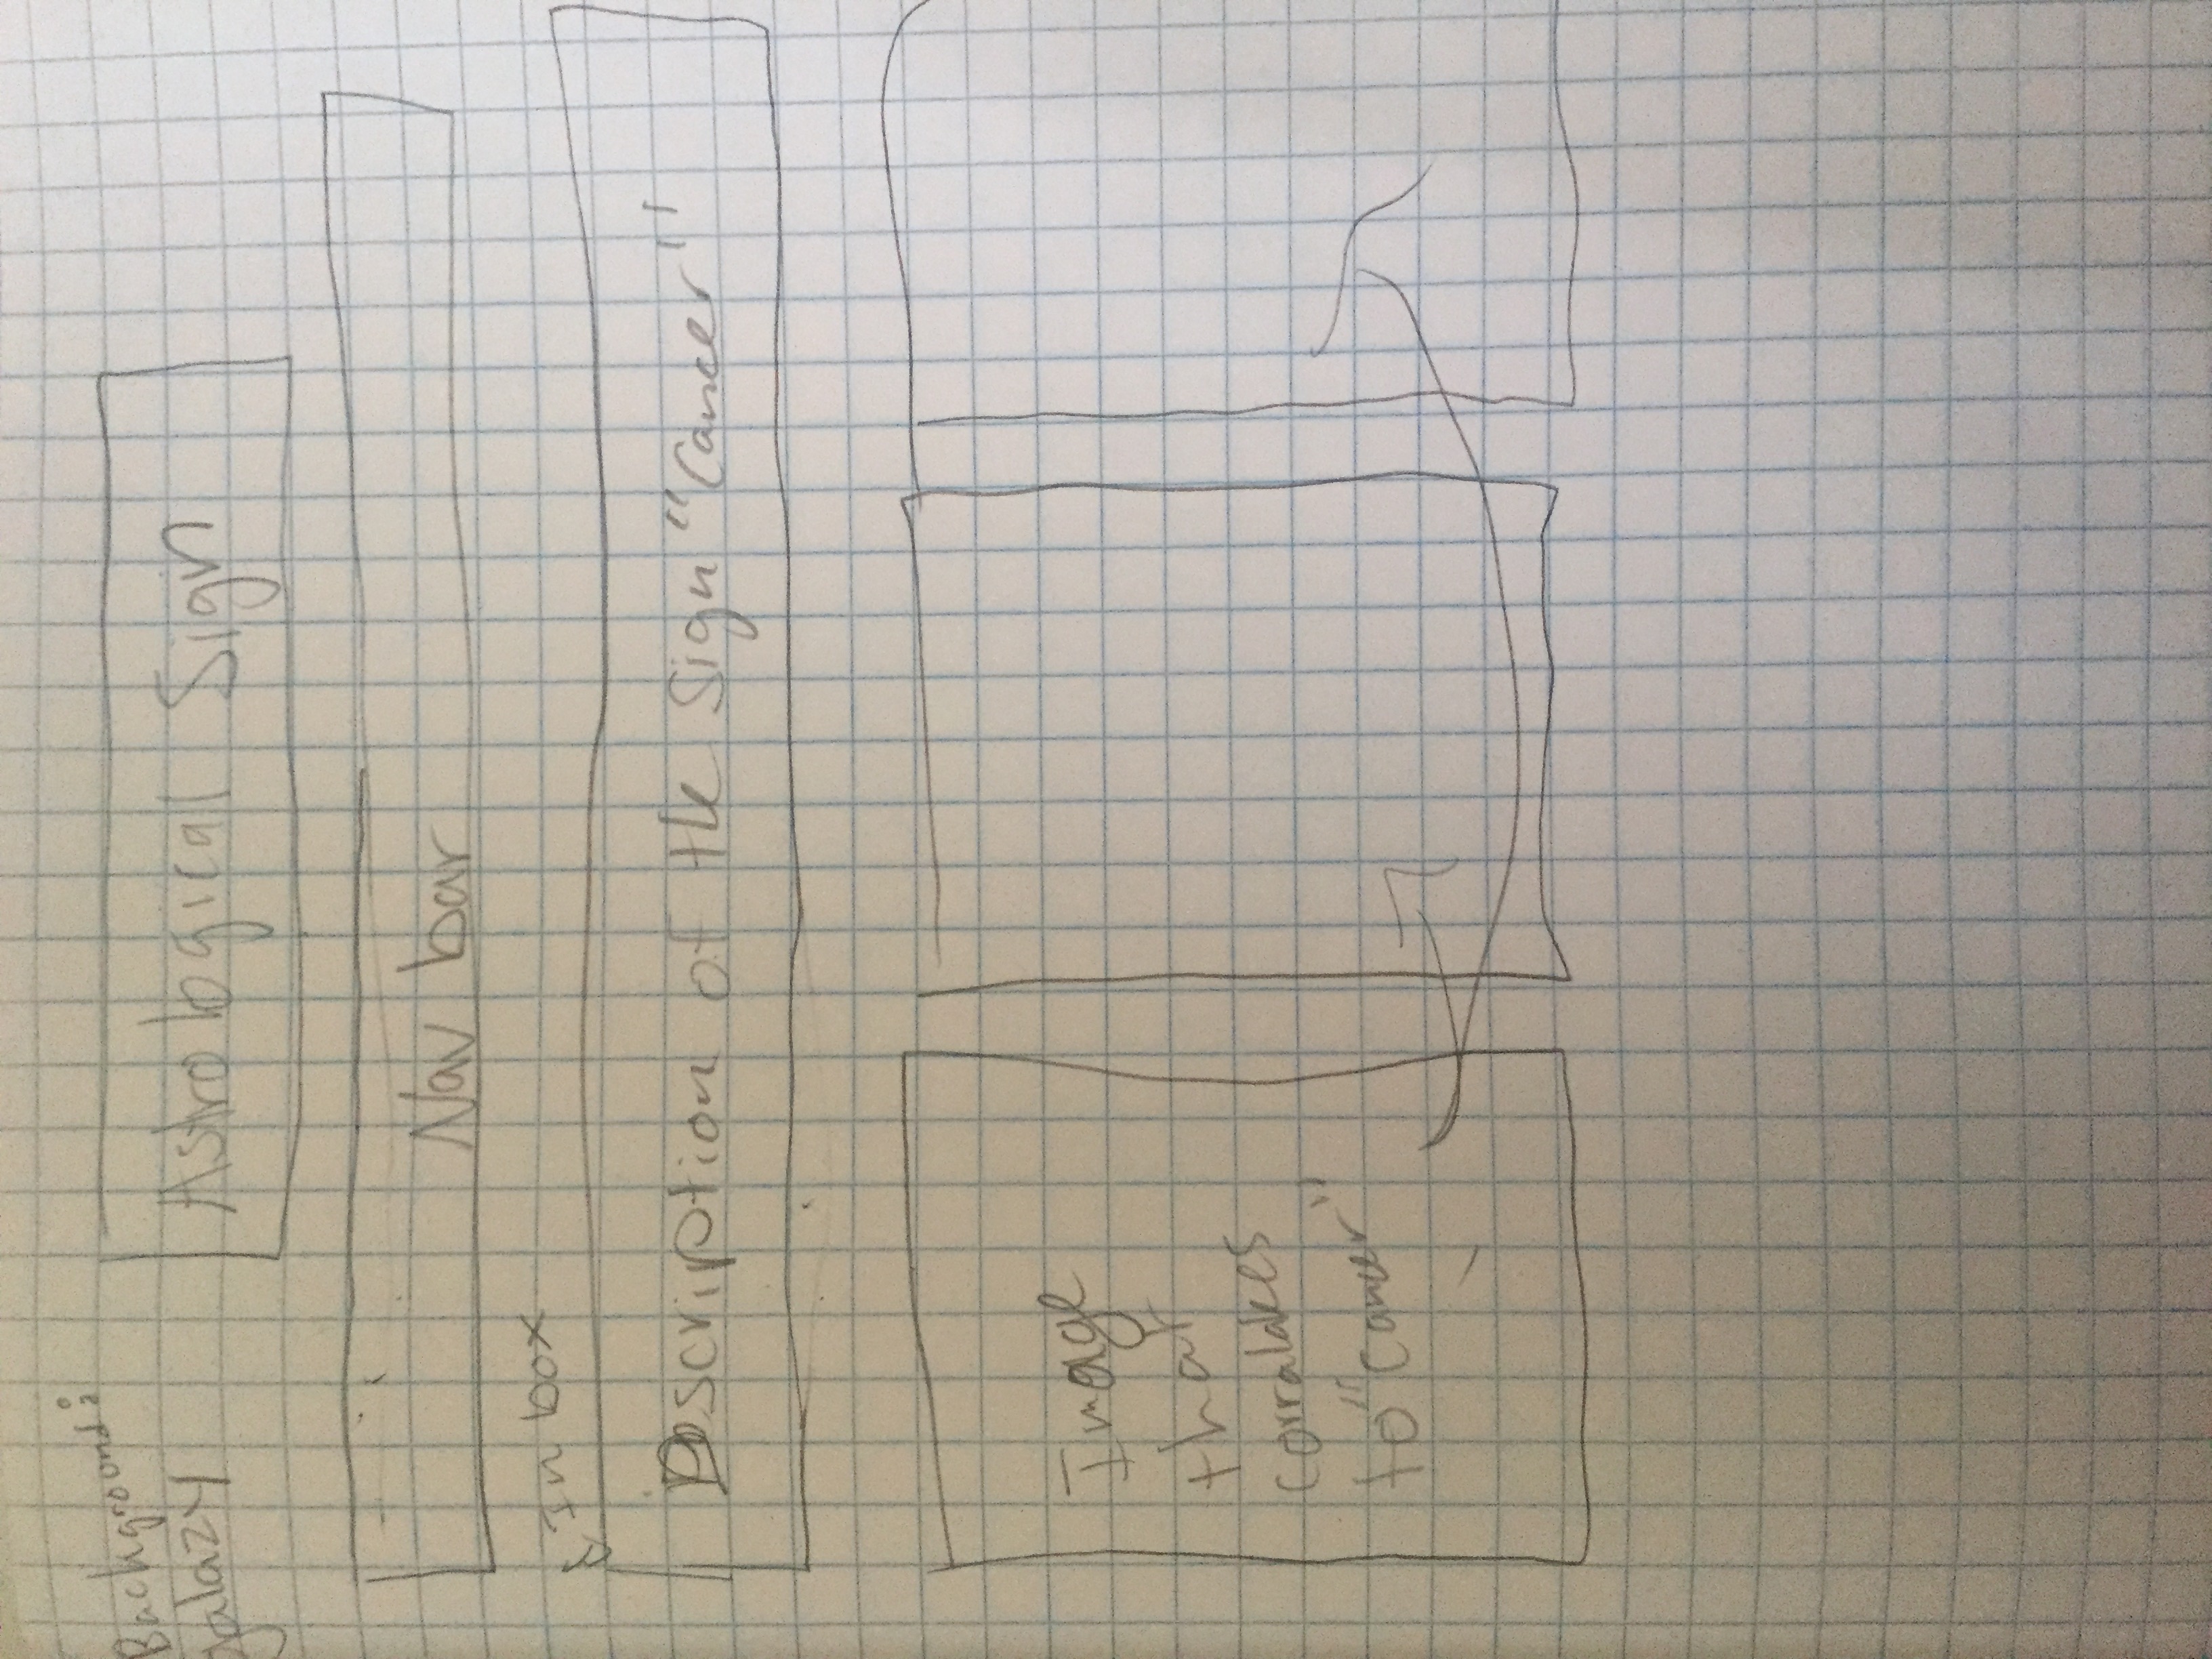 Background:
galazy
Astrological Sign
Nav bar
In box
Description of the Sign "Cancer"
Image
that
corralates
to "Cancer"